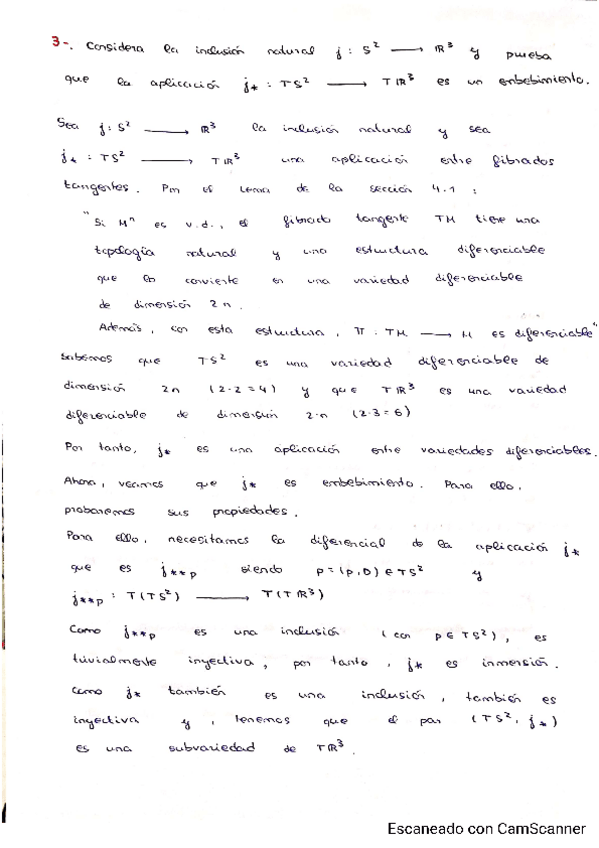 3-. Considera la inclusión natural j : S² ⟶ ℝ³ y prueba
que la aplicación j* : TS² ⟶ Tℝ³ es un embebimiento.
Sea j : S² ⟶ ℝ³ la inclusión natural y sea
j* : TS² ⟶ Tℝ³ una aplicación entre fibrados
tangentes. Por el lema de la sección 4.1 :
"Si Mⁿ es v.d., el fibrado tangente TM tiene una
topología natural y una estructura diferenciable
que lo convierte en una variedad diferenciable
de dimensión 2n.
Además, con esta estructura, π : TM ⟶ M es diferenciable"
Sabemos que TS² es una variedad diferenciable de
dimensión 2n (2·2=4) y que Tℝ³ es una variedad
diferenciable de dimensión 2·n (2·3=6)
Por tanto, j* es una aplicación entre variedades diferenciables.
Ahora, veamos que j* es embebimiento. Para ello,
probaremos sus propiedades.
Para ello, necesitamos la diferencial de la aplicación j*
que es j**p siendo p=(p,0) ∈ TS² y
j**p : T(TS²) ⟶ T(Tℝ³)
Como j**p es una inclusión (con p ∈ TS²), es
trivialmente inyectiva, por tanto, j* es inmersión.
Como j* también es una inclusión, también es
inyectiva y, tenemos que el par (TS², j*)
es una subvariedad de Tℝ³.
Escaneado con CamScanner